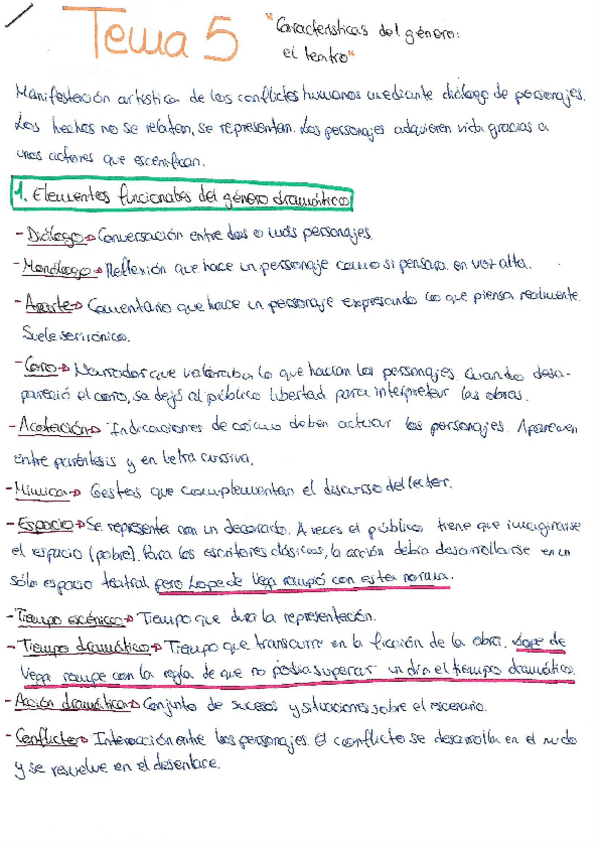 Tema 5
"Características del género:
el teatro"
Manifestación artística de los conflictos humanos mediante diálogo de personajes.
Los hechos no se relatan, se representan. Los personajes adquieren vida gracias a
unos actores que escenifican.
1. Elementos funcionales del género dramático
- Diálogo → Conversación entre dos o más personajes.
- Monólogo → Reflexión que hace un personaje como si pensara en voz alta.
- Aparte → Comentario que hace un personaje expresando lo que piensa realmente.
Suele ser irónico.
- Coro → Narrador que valoraba lo que hacían los personajes. Cuando desa-
pareció el coro, se dejó al público libertad para interpretar las obras.
- Acotación → Indicaciones de cómo deben actuar los personajes. Aparecen
entre paréntesis y en letra cursiva.
- Mímica → Gestos que complementan el discurso del lector.
- Espacio → Se representa con un decorado. A veces el público tiene que imaginarse
el espacio (pobre). Para los escritores clásicos, la acción debía desarrollarse en un
sólo espacio teatral pero Lope de Vega rompió con esta norma.
- Tiempo escénico → Tiempo que dura la representación.
- Tiempo dramático → Tiempo que transcurre en la ficción de la obra. Lope de
Vega rompe con la regla de que no podía superar un día el tiempo dramático.
- Acción dramática → Conjunto de sucesos y situaciones sobre el escenario.
- Conflicto → Interacción entre los personajes. El conflicto se desarrolla en el nudo
y se resuelve en el desenlace.